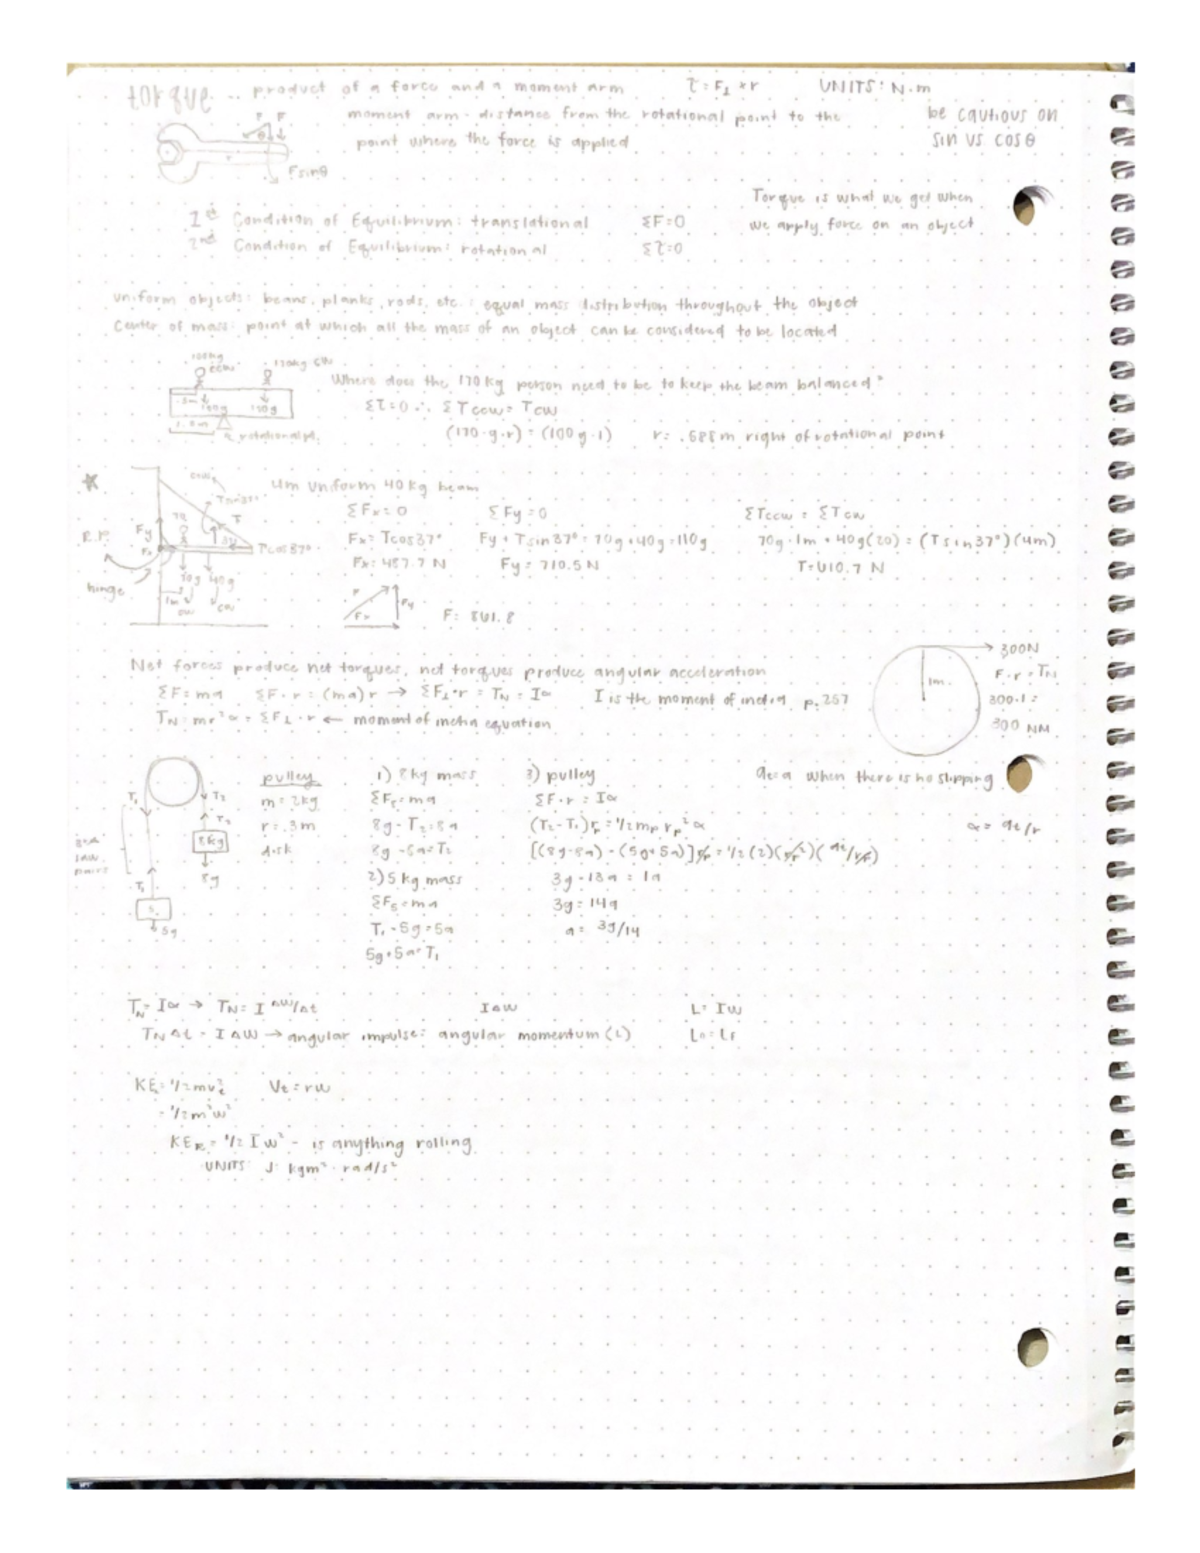 torque -- product of a force and a moment arm τ = F⊥ × r UNITS: N·m
moment arm - distance from the rotational point to the
point where the force is applied
be cautious on
sin vs cos θ
F F
θ
r
Fsinθ
Torque is what we get when
we apply force on an object
1st Condition of Equilibrium: translational ΣF=0
2nd Condition of Equilibrium: rotational Στ=0
uniform objects: beans, planks, rods, etc.: equal mass distribution throughout the object
Center of mass: point at which all the mass of an object can be considered to be located
100kg
CCW
170kg CW
.5m 100g 170g
1.5m
rotational pt.
Where does the 170 kg person need to be to keep the beam balanced?
Στ=0 ∴ ΣTccw = Tcw
(170·g·r) = (100g·1) r= .588m right of rotational point
4m uniform 40 kg beam
ccw
Tsin37°
T
Fy
70
37°
R.P.
Fx
Tcos37°
hinge
70g 40g
1m
cw cw
ΣFx=0 ΣFy=0 ΣTccw = ΣTcw
Fx= Tcos37° Fy + Tsin37° = 70g+40g=110g 70g·1m + 40g(20) = (Tsin37°)(4m)
Fx= 487.7 N Fy= 710.5 N T=610.7 N
F Fy
Fx
F= 861.8
Net forces produce net torques, net torques produce angular acceleration
ΣF=ma ΣF·r = (ma)r → ΣF⊥·r = TN = Iα I is the moment of inertia p.257
TN= mr²α = ΣF⊥·r ← moment of inertia equation
300N
1m
F·r=TN
300·1=
300 NM
at=a when there is no slipping
α= at/r
T1 T2
T2
8kg
8g
3rd
law
pairs
T1
5
5g
pulley
m= 2kg
r= .3m
disk
1) 8kg mass
ΣF8=ma
8g-T2=8a
8g-8a=T2
2) 5 kg mass
ΣF5=ma
T1-5g=5a
5g+5a=T1
3) pulley
ΣF·r = Iα
(T2-T1)rp = 1/2 mp rp² α
[(8g-8a) - (5g+5a)]rp = 1/2 (2)(rp²)(at/rp)
3g-13a = 1a
3g= 14a
a= 3g/14
TN= Iα → TN= I ΔW/Δt IΔW L= Iw
TNΔt = IΔW → angular impulse= angular momentum (L) Lo=LF
KE= 1/2 mvt² Vt=rw
= 1/2 m²w²
KER= 1/2 Iw² - is anything rolling
UNITS: J: kgm²·rad/s²